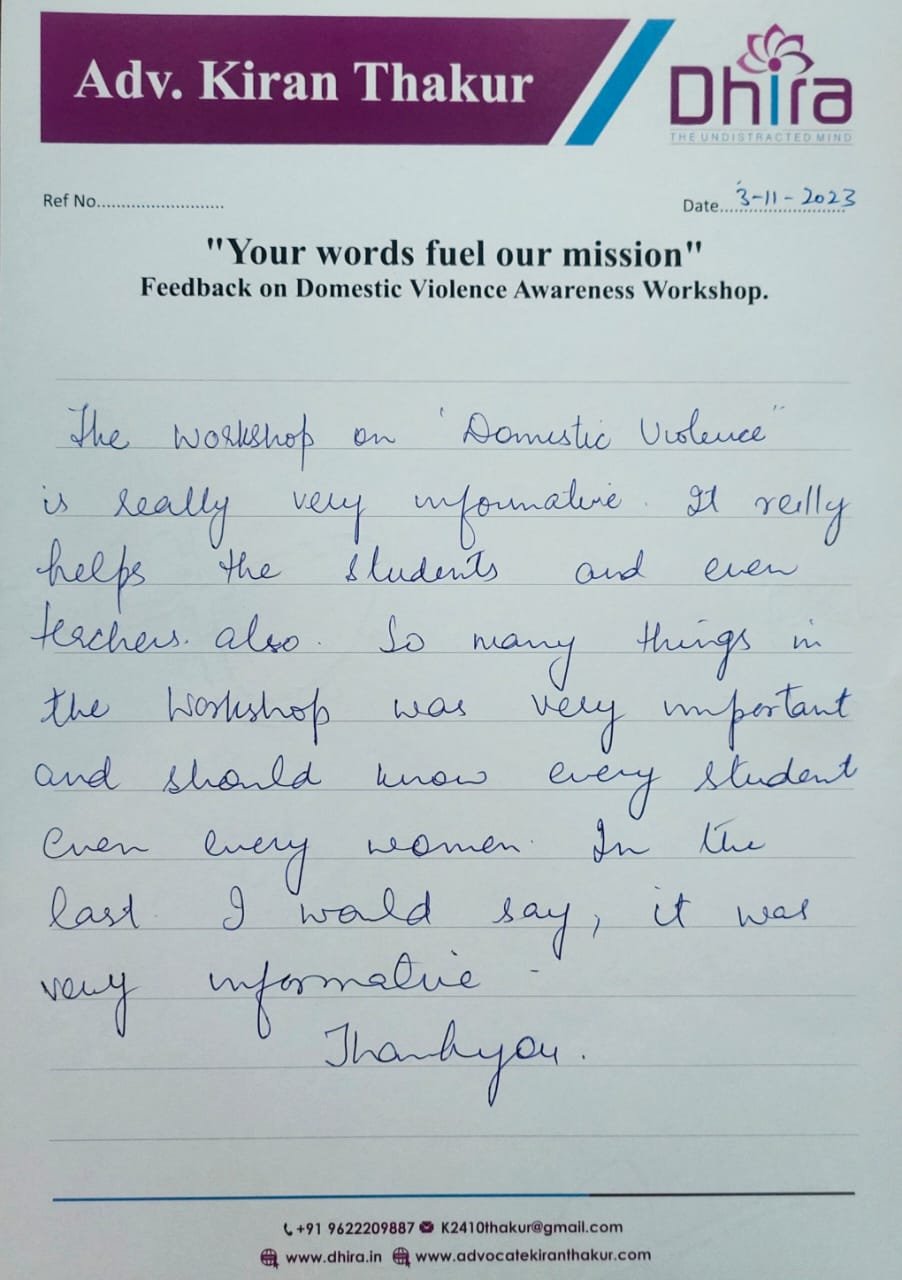 Adv. Kiran Thakur
Dhira
THE UNDISTRACTED MIND
Ref No..........................
Date... 3-11-2023
"Your words fuel our mission"
Feedback on Domestic Violence Awareness Workshop.
The workshop on 'Domestic Violence"
is really very informative. It really
helps the students and even
teachers. also. So many things in
the workshop was very important
and should know every student
even every women. In the
last. I would say, it was
very informative -
Thankyou.
+91 9622209887 K2410thakur@gmail.com
www.dhira.in www.advocatekiranthakur.com